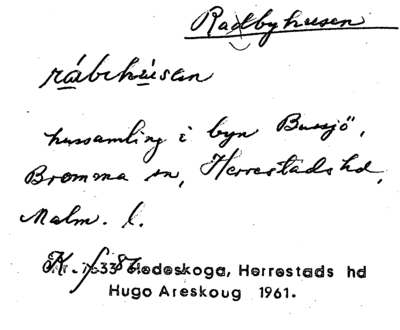 Radbyhusen
råbehúsen
hussamling i byn Bussjö,
Bromma sn, Herrestads hd,
Malm. l.
Hedeskoga, Herrestads hd
Hugo Areskoug 1961.